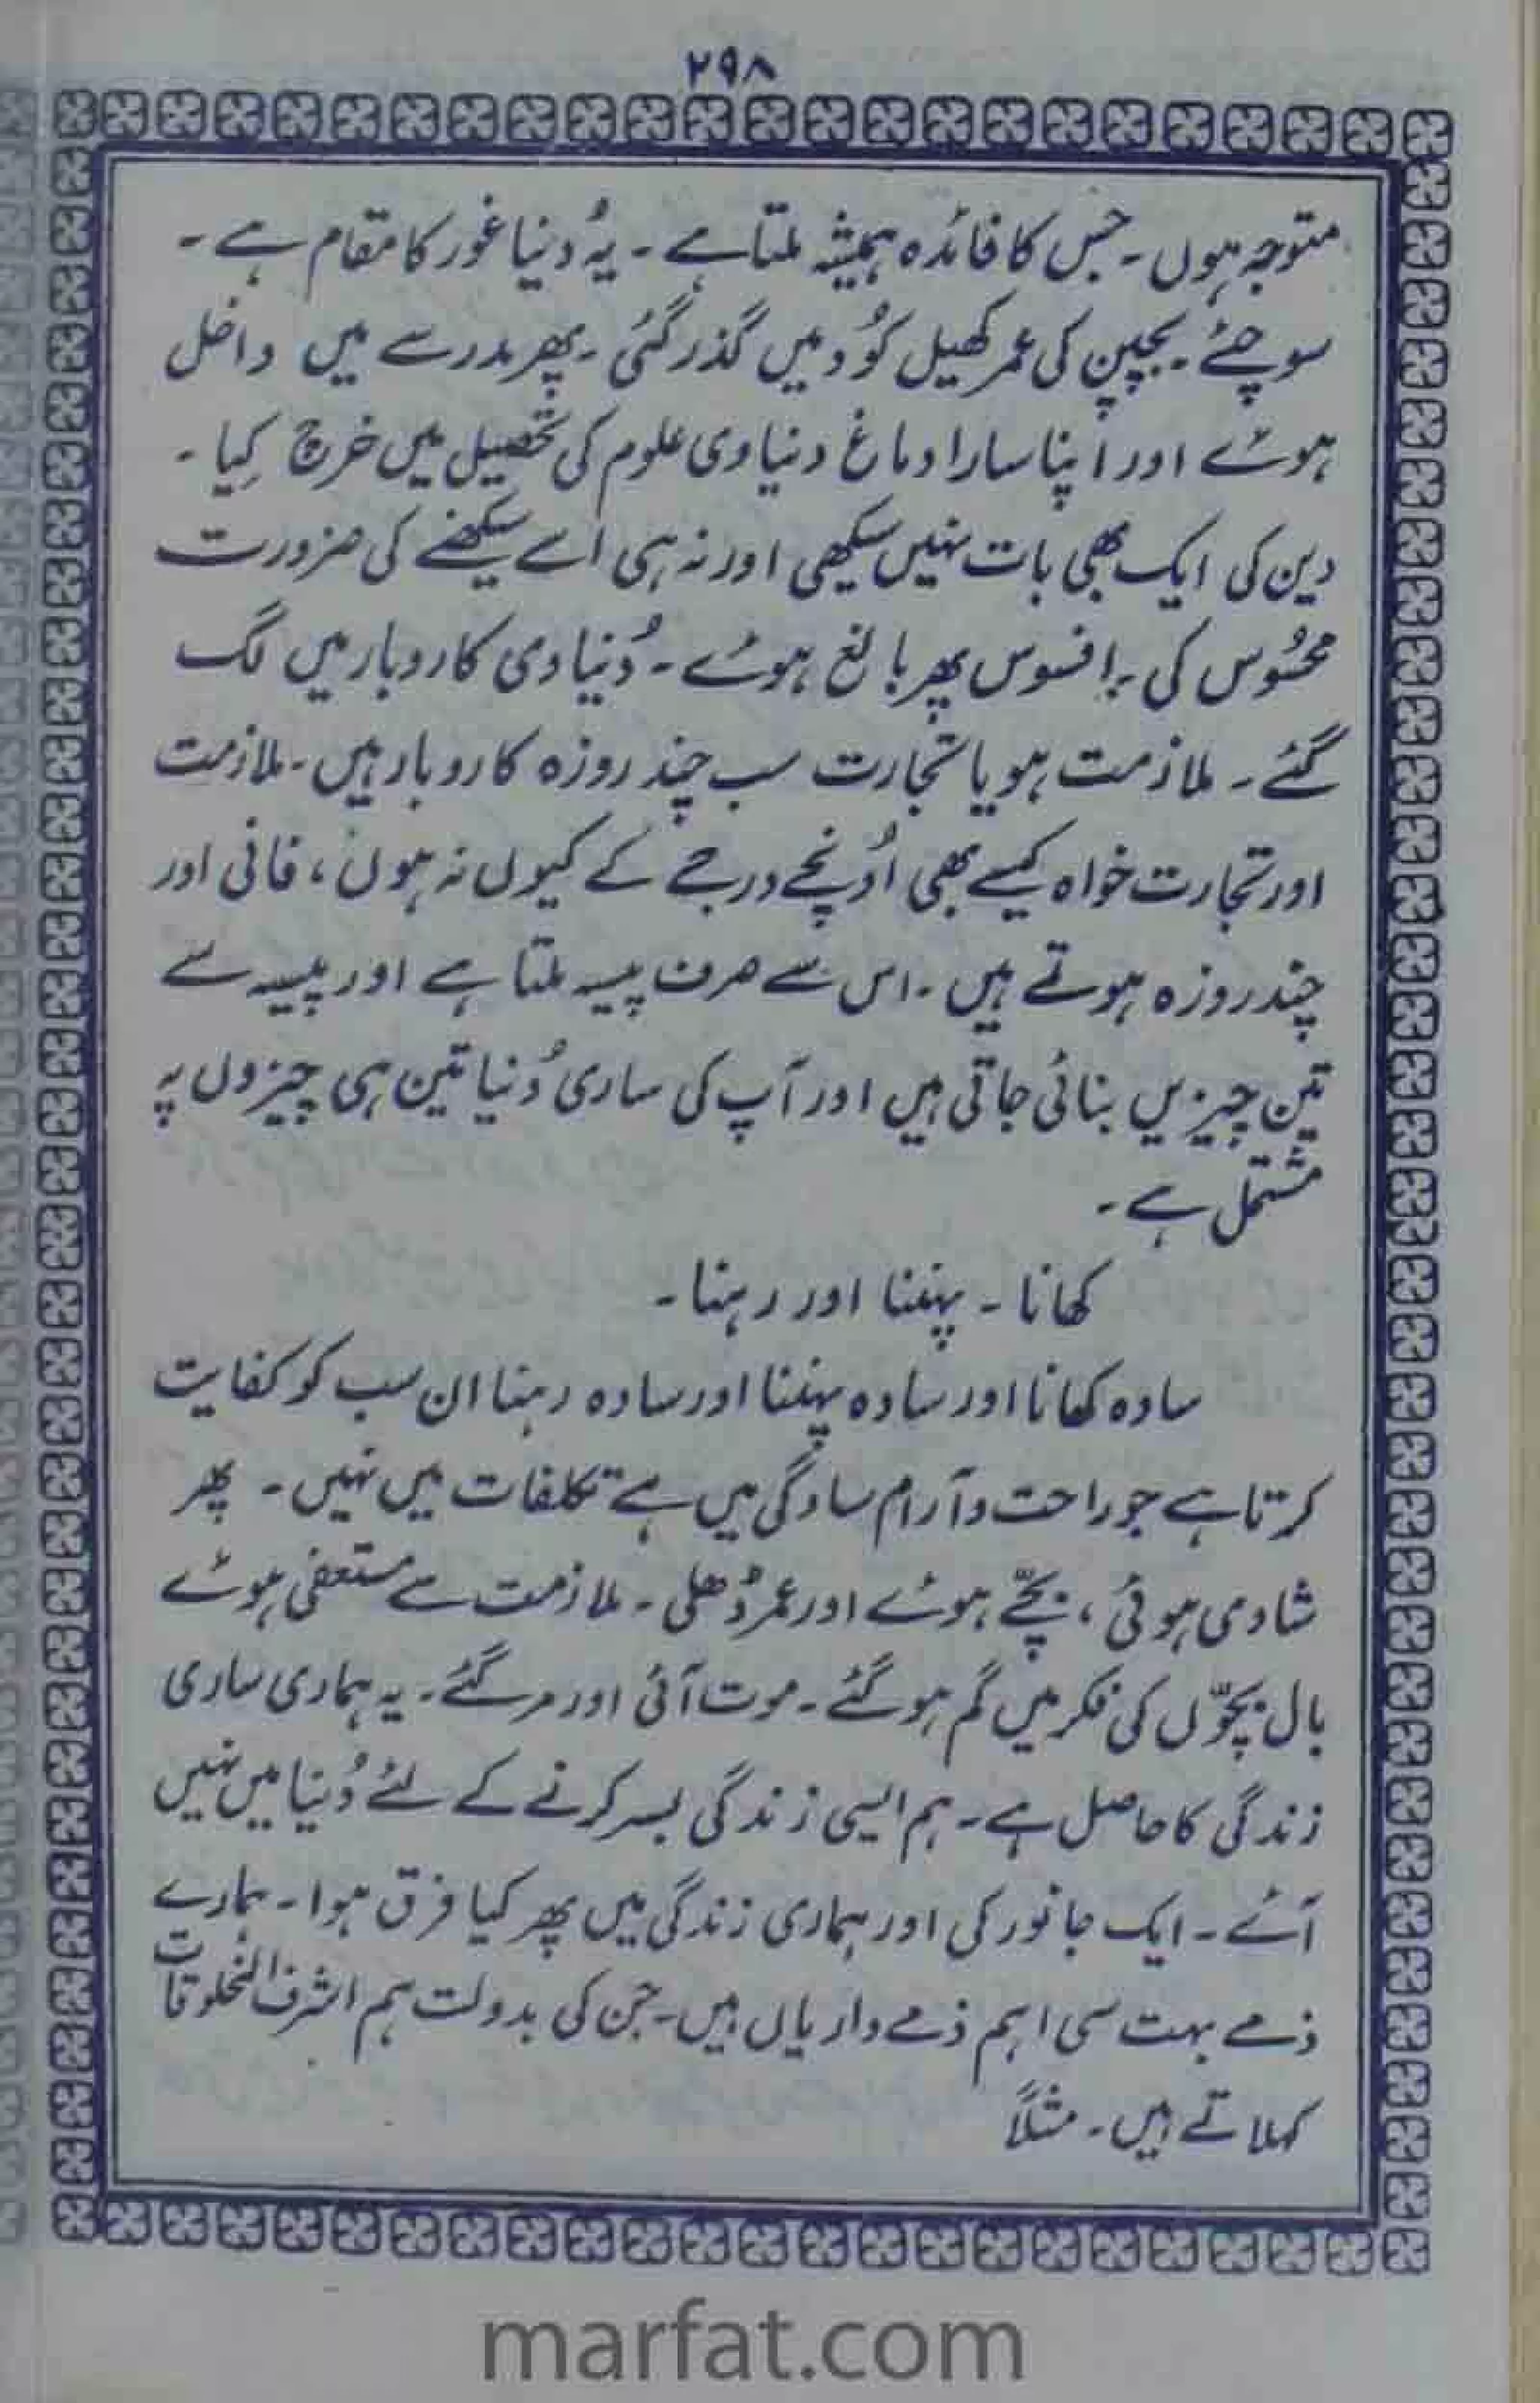 ۲۹۸
متوجہ ہوں۔ جس کا فائدہ ہمیشہ ملتا ہے۔ یہ دنیا غور کا مقام ہے۔
سوچئے۔ بچپن کی عمر کھیل کُود میں گذر گئی۔ پھر مدرسے میں داخل
ہوئے اور اپنا سارا دماغ دنیاوی علوم کی تحصیل میں خرچ کِیا۔
دین کی ایک بھی بات نہیں سیکھی اور نہ ہی اسے سیکھنے کی ضرورت
محسُوس کی۔ افسوس پھر بالغ ہوئے۔ دُنیاوی کاروبار میں لگ
گئے۔ ملازمت ہو یا تجارت سب چند روزہ کاروبار ہیں۔ ملازمت
اور تجارت خواہ کیسے بھی اُونچے درجے کے کیوں نہ ہوں، فانی اور
چند روزہ ہوتے ہیں۔ اس سے صرف پیسہ ملتا ہے اور پیسہ سے
تین چیزیں بنائی جاتی ہیں اور آپ کی ساری دُنیا تین ہی چیزوں پہ
مشتمل ہے۔
کھانا۔ پہننا اور رہنا۔
سادہ کھانا اور سادہ پہننا اور سادہ رہنا ان سب کو کفایت
کرتا ہے جو راحت و آرام سادگی میں ہے تکلفات میں نہیں۔ پھر
شادی ہوئی، بچّے ہوئے اور عمر ڈھلی۔ ملازمت سے مستعفی ہوئے
بال بچّوں کی فکر میں گم ہو گئے۔ موت آئی اور مر گئے۔ یہ ہماری ساری
زندگی کا حاصل ہے۔ ہم ایسی زندگی بسر کرنے کے لئے دُنیا میں نہیں
آئے۔ ایک جانور کی اور ہماری زندگی میں پھر کیا فرق ہوا۔ ہمارے
ذمے بہت سی اہم ذمے داریاں ہیں۔ جن کی بدولت ہم اشرف المخلوقات
کہلاتے ہیں۔ مثلاً
marfat.com